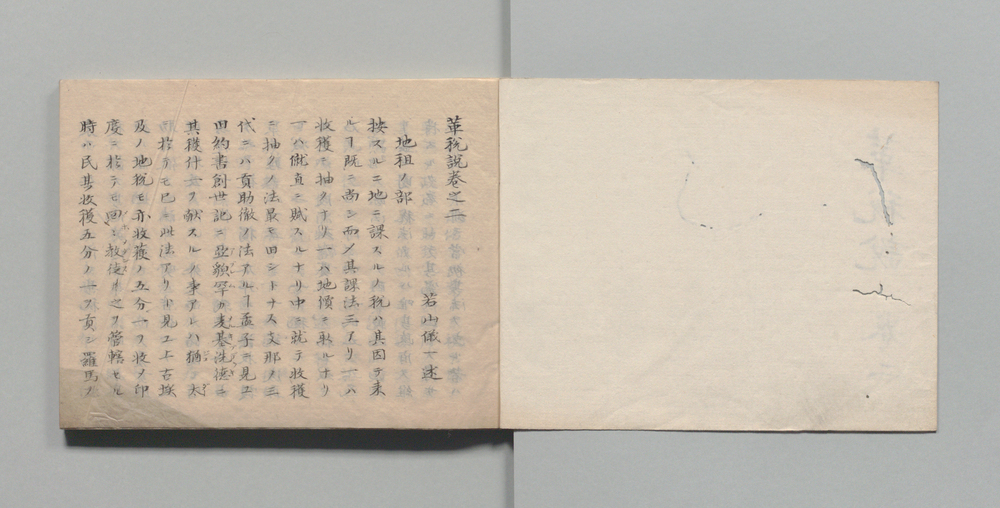 革税説巻之二
地租ノ部
若山儀一述
按スルニ地ニ課スルノ税ハ其因テ来
ルヿ既ニ尚シ而メ其課法三アリ一ハ
収穫ニ抽クナリ一ハ地價ニ取ルナリ
一ハ僦直ニ賦スルナリ中ニ就テ收穫
ニ抽クノ法最モ田シトナス支那ノ三
代ニハ貢助徹ノ法アルヿ孟子ニ見エ
田約書創世記ニ亞顙罕カ麦基洗德ニ
其穫什一ヲ献スルノ事アレハ猶太
ニ於テモ已ニ此法アリシト見エ上古埃
及ノ地税モ亦收獲ノ五分一ヲ收メ印
度ニ於テモ回教徒ノ之ヲ管轄セル
時ハ民其收穫五分ノ一ヲ貢シ羅馬ノ